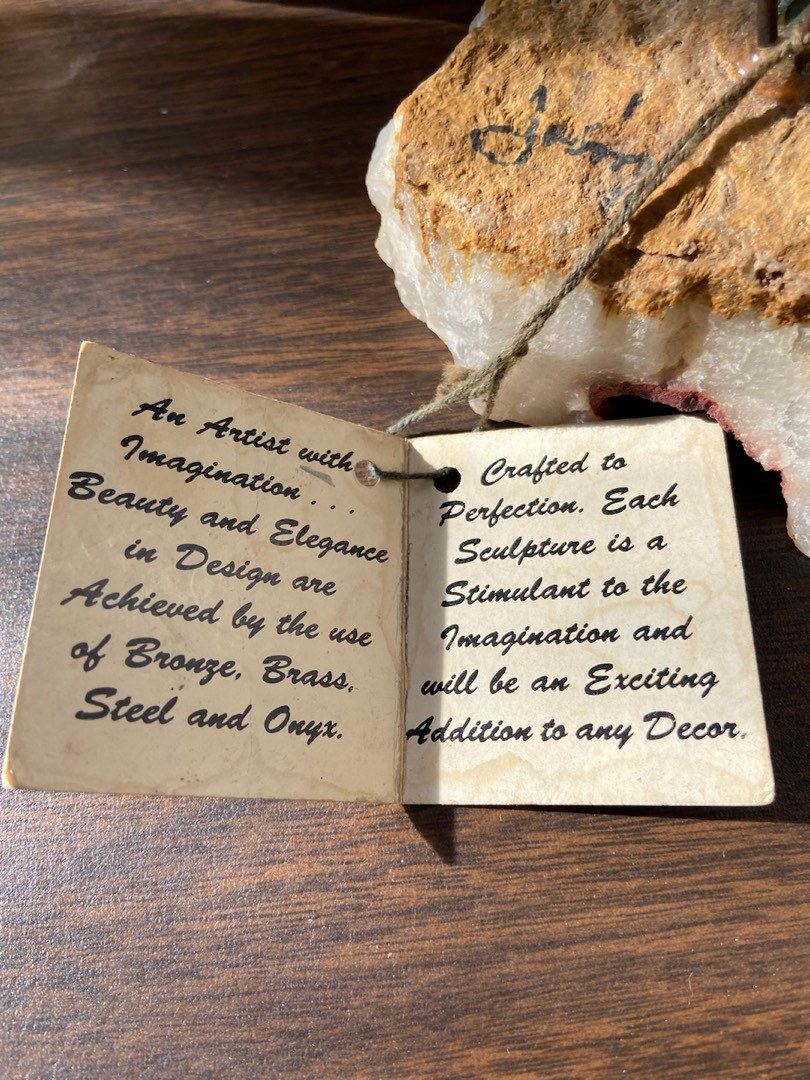 An Artist with
Imagination . . .
Beauty and Elegance
in Design are
Achieved by the use
of Bronze, Brass,
Steel and Onyx.
Crafted to
Perfection. Each
Sculpture is a
Stimulant to the
Imagination and
will be an Exciting
Addition to any Decor.